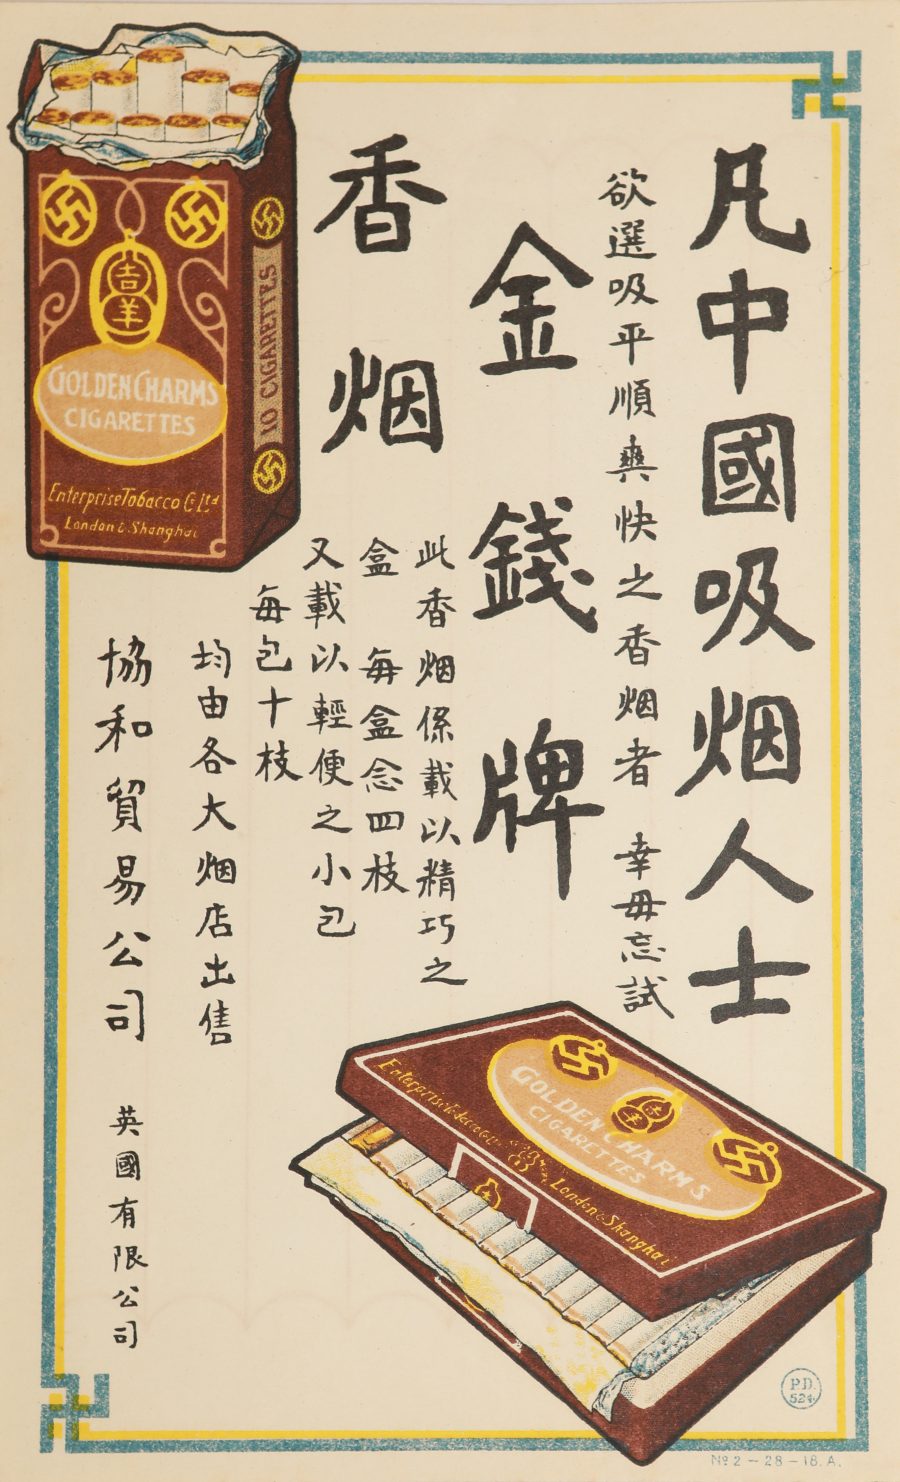 凡中國吸烟人士
欲選吸平順爽快之香烟者 幸毋忘試
金錢牌
香烟
此香烟係載以精巧之
盒 每盒念四枝
又載以輕便之小包
每包十枝
均由各大烟店出售
協和貿易公司 英國有限公司
吉羊
GOLDEN CHARMS
CIGARETTES
Enterprise Tobacco Co Ltd
London & Shanghai
10 CIGARETTES
GOLDEN CHARMS
CIGARETTES
Enterprise Tobacco Co
London & Shanghai
P.D.
524
No 2-28-18.A.